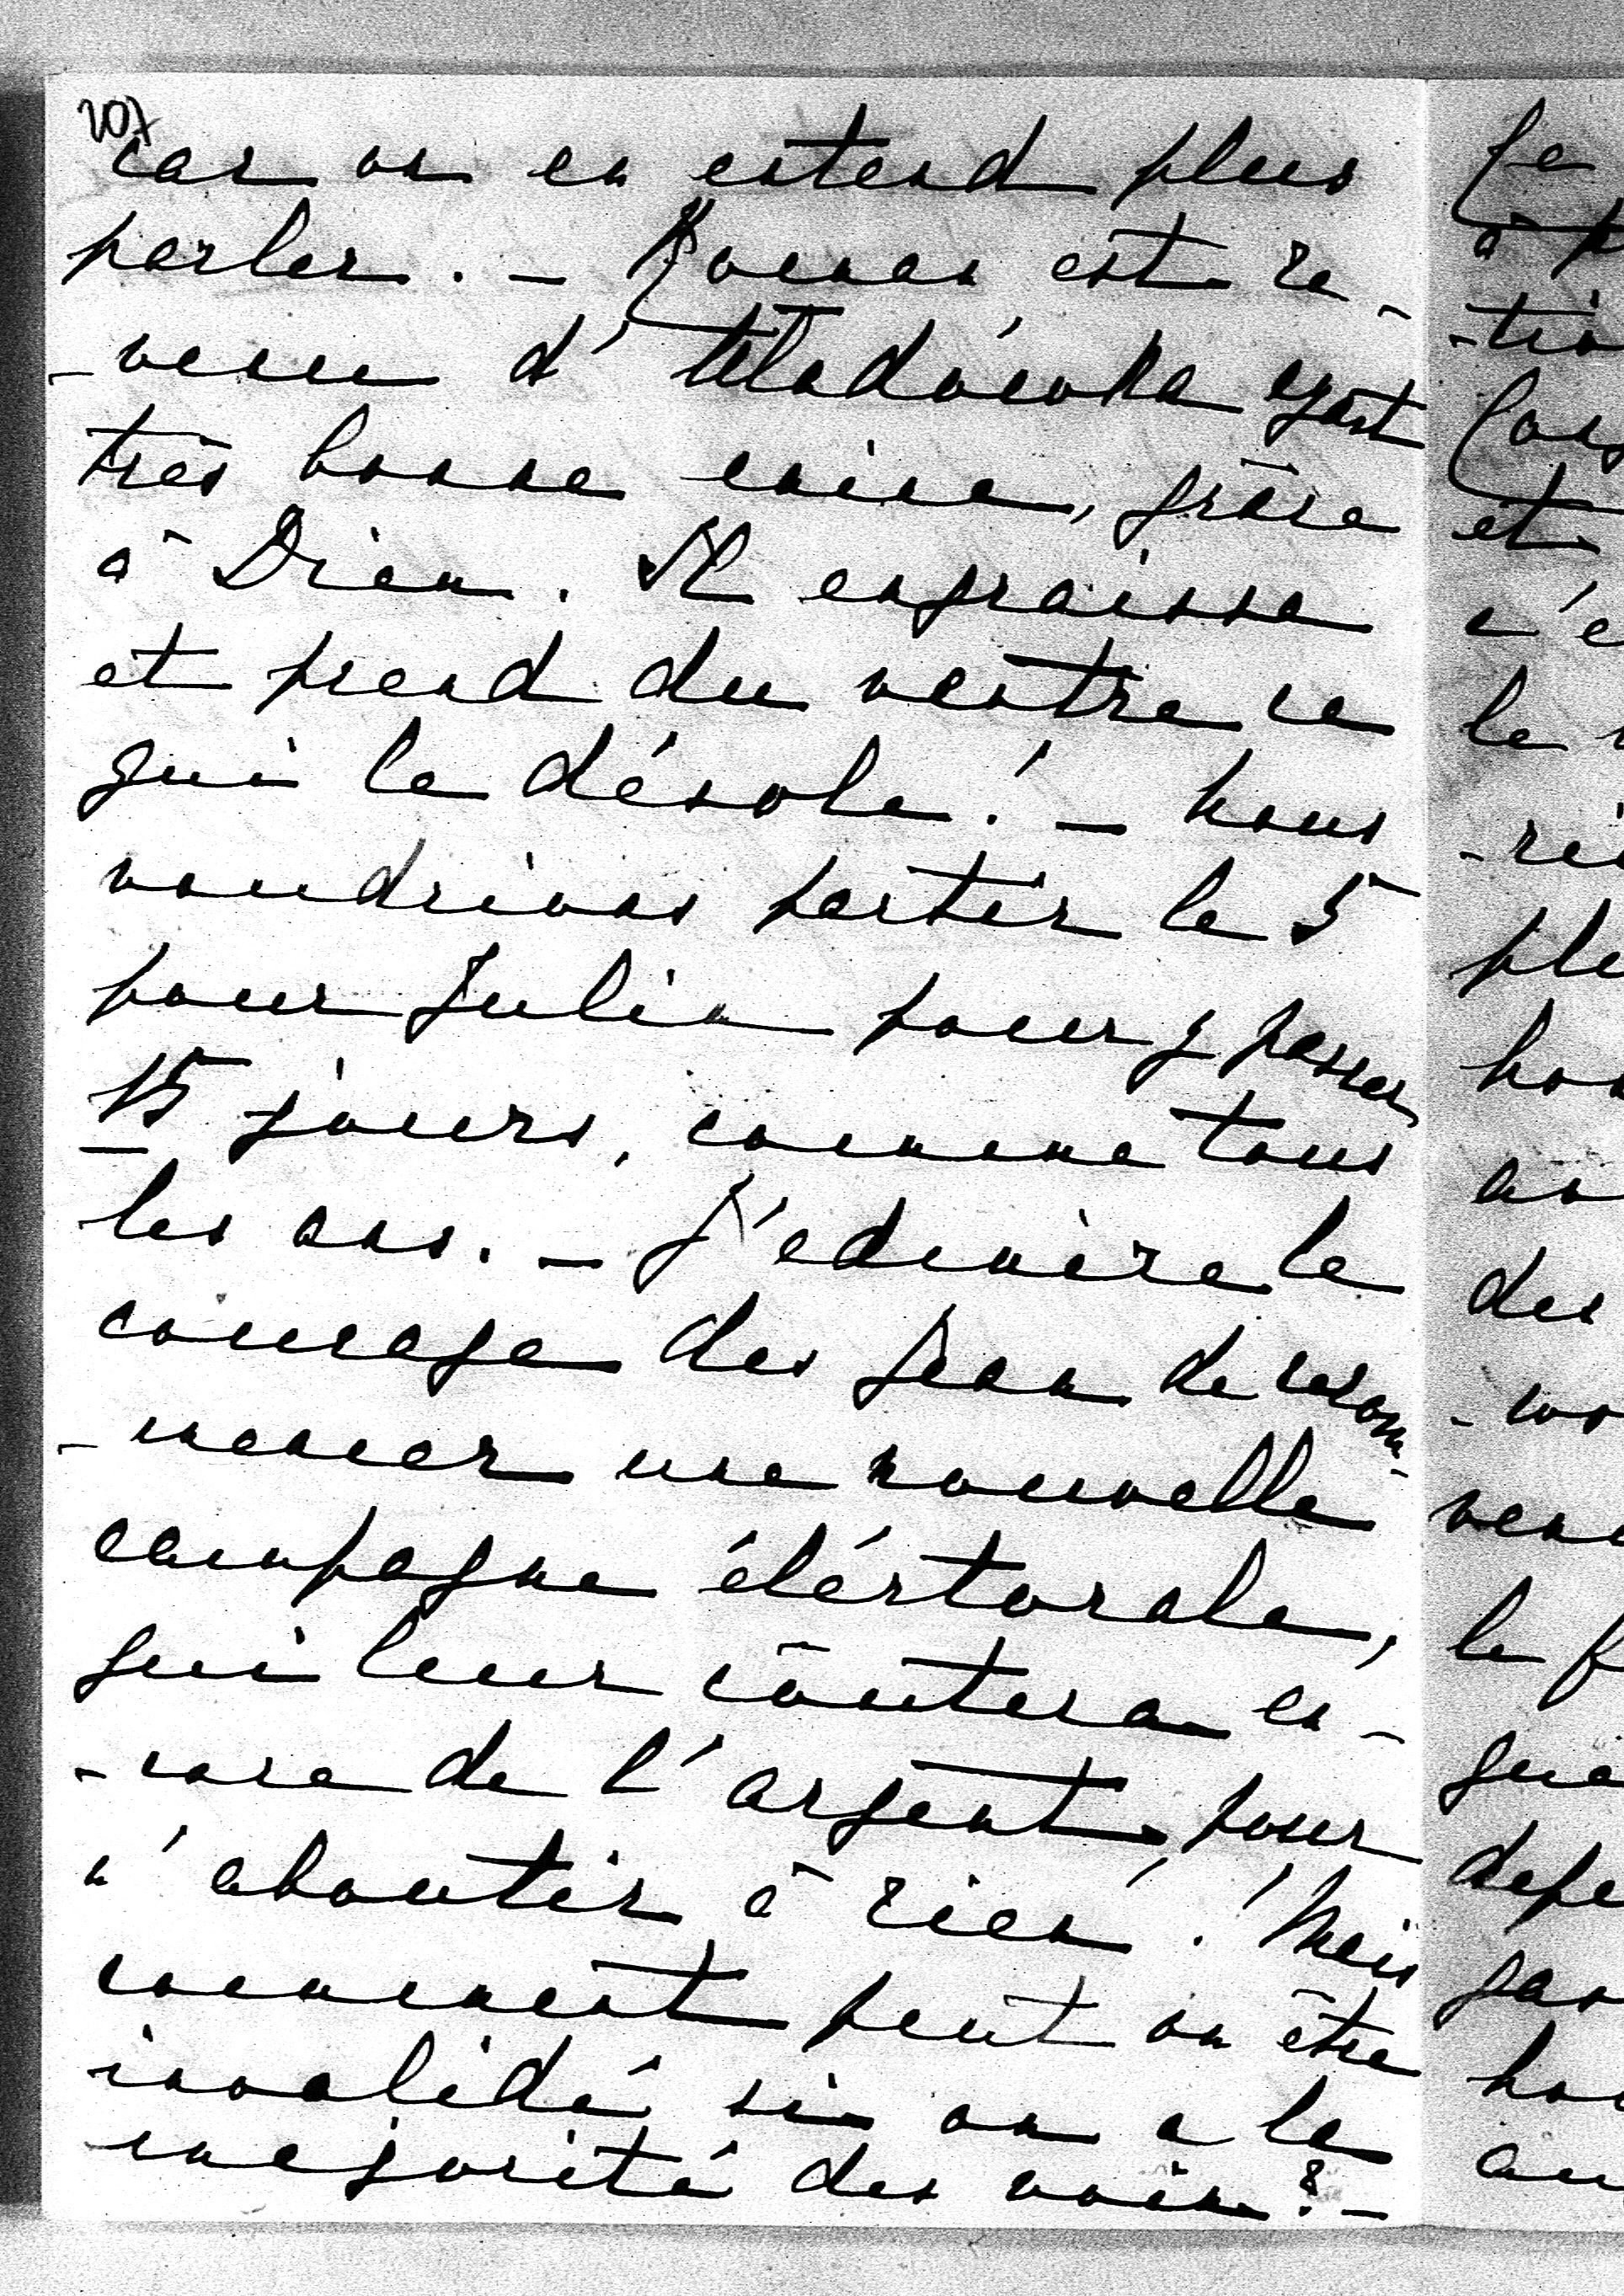 207
car on en entend plus
parler. – Roman est re-
-venu d'Uladówka ayant
très bonne mine, grâce
à Dieu. Il engraisse
et prend du ventre ce
qui le désole! – Nous
voudrions partir le 5
pour Julin pour y passer
15 jours, comme tous
les ans. – J'admire le
courage des Jean de recom-
-mencer une nouvelle
campagne éléctorale,
qui leur coûtera en-
-core de l'argent, pour
n'aboutir à rien! Mais
comment peut on être
invalidé si on a la
majorité des voix? –